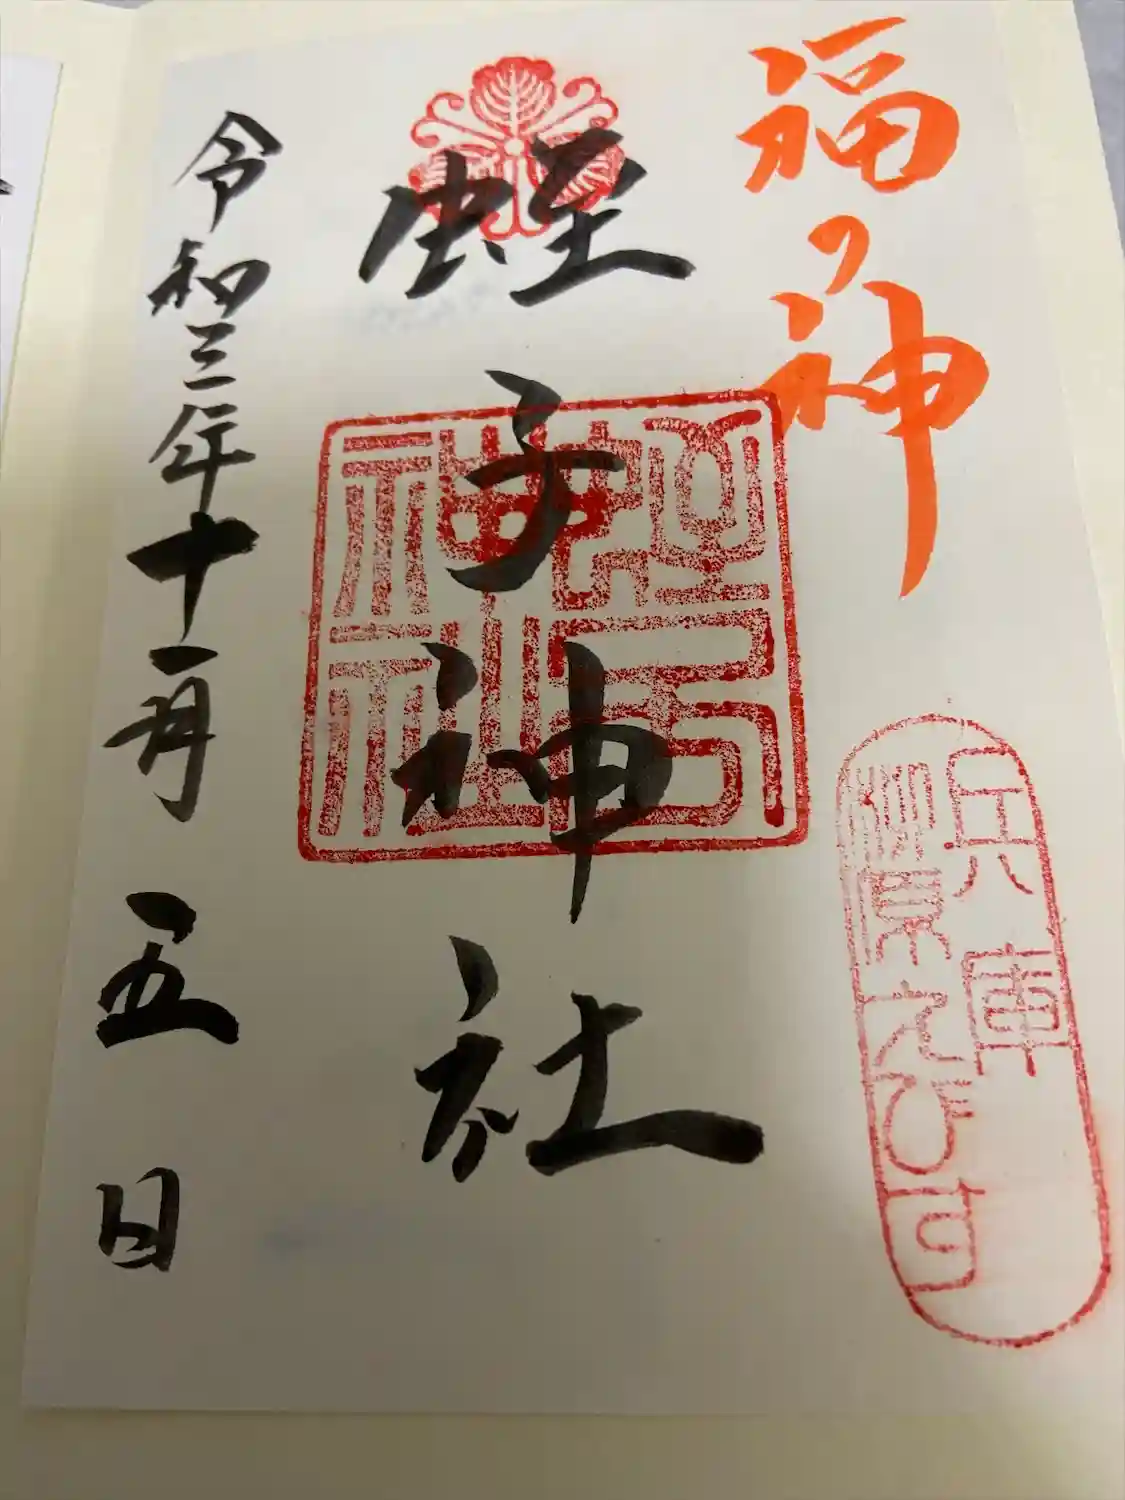 福の神
兵庫
柳原えびす
蛭子神社
蛭兒神社
令和三年十一月五日